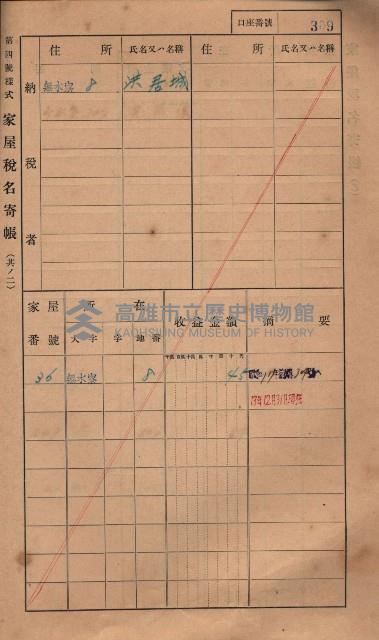 口座番號 309
第四號樣式 家屋稅名寄帳 (其ノ二)
納稅者
住所 氏名又ハ名稱 住所 氏名又ハ名稱
無水寮 8 洪居城
家屋番號 所在 收益金額 摘要
大字 字 地番
高雄市立歷史博物館
KAOHSIUNG MUSEUM OF HISTORY
36 無水寮 8 45